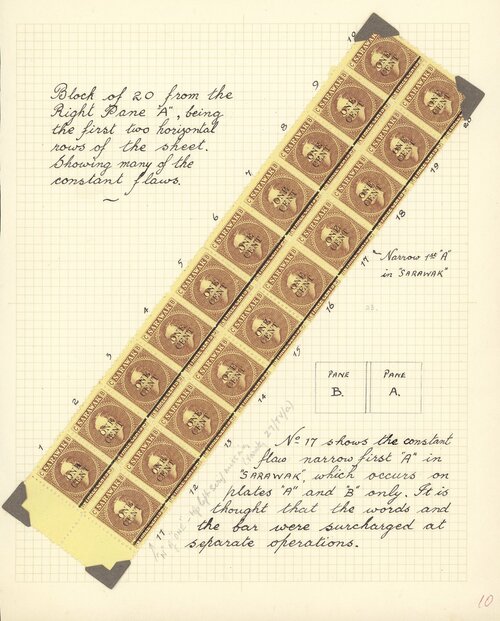 Block of 20 from the
Right Pane "A", being
the first two horizontal
rows of the sheet.
Showing many of the
constant flaws.
1
2
3
4
5
6
7
8
9
10
SARAWAK
ONE
CENT
11
12
13
14
15
16
17
18
19
20
Narrow 1st "A"
in "SARAWAK"
PANE
B.
PANE
A.
No 17 shows the constant
flaw narrow first "A" in
"SARAWAK", which occurs on
plates "A" and "B" only. It is
thought that the words and
the bar were surcharged at
separate operations.
10